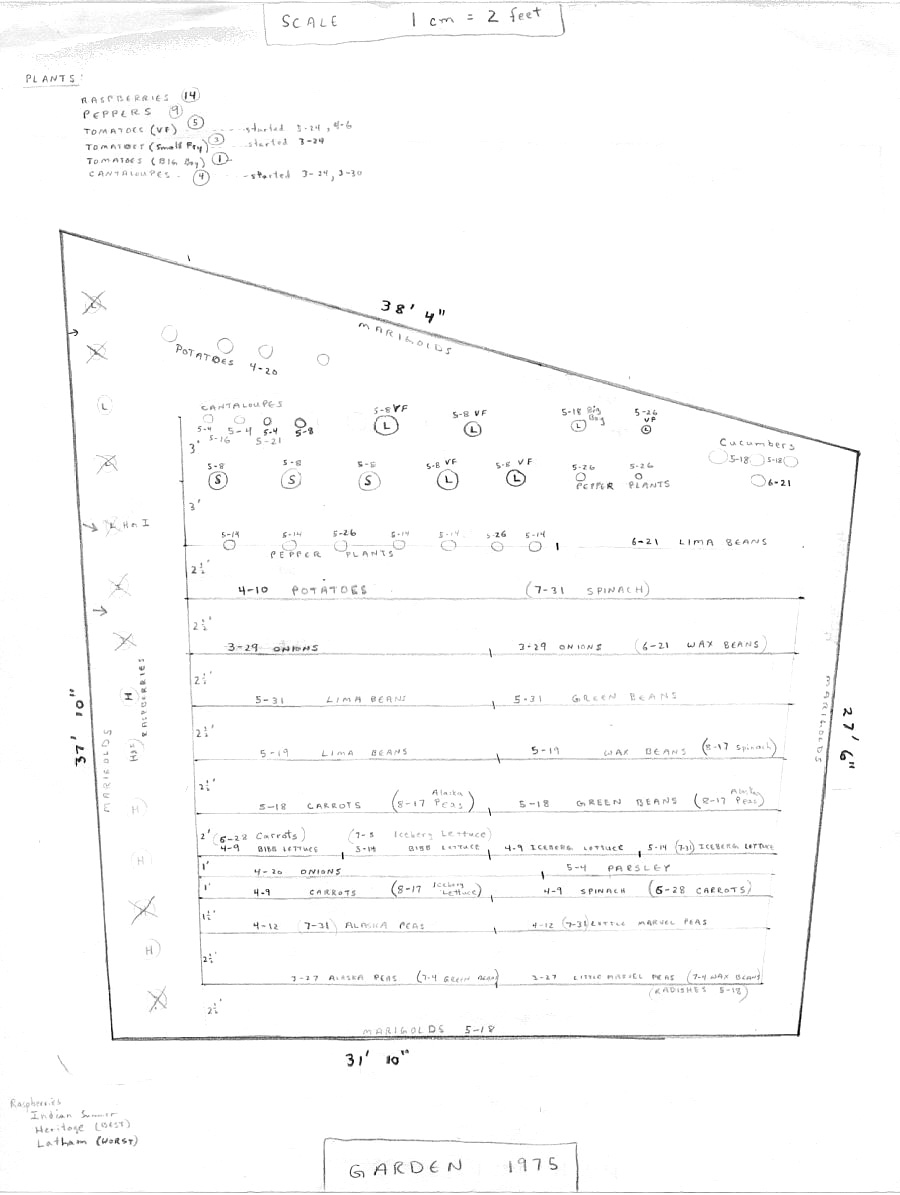 SCALE 1 cm = 2 feet
PLANTS:
RASPBERRIES 14
PEPPERS 9
TOMATOES (VF) 5 started 3-24, 4-6
TOMATOES (Small Fry) 3 started 3-24
TOMATOES (BIG Boy) 1
CANTALOUPES 4 started 3-24, 3-30
38' 4"
MARIGOLDS
POTATOES 4-20
CANTALOUPES
5-4 5-4 5-4 5-8
5-16 5-21
5-8 VF L
5-8 VF L
5-18 Big Boy L
5-26 VF L
Cucumbers
5-18 5-18
6-21
3'
5-8 S
5-8 S
5-8 S
5-8 VF L
5-8 VF L
5-26 5-26
PEPPER PLANTS
3'
5-14 5-14 5-26 5-14 5-14 5-26 5-14
PEPPER PLANTS
6-21 LIMA BEANS
2½'
4-10 POTATOES (7-31 SPINACH)
2½'
3-29 ONIONS 3-29 ONIONS (6-21 WAX BEANS)
2½'
5-31 LIMA BEANS 5-31 GREEN BEANS
2½'
5-19 LIMA BEANS 5-19 WAX BEANS (8-17 Spinach)
2½'
5-18 CARROTS (8-17 Alaska Peas) 5-18 GREEN BEANS (8-17 Alaska Peas)
2'
(6-28 Carrots) (7-5 Iceberg Lettuce)
4-9 BIBB LETTUCE 5-14 BIBB LETTUCE 4-9 ICEBERG LETTUCE 5-14 (7-31) ICEBERG LETTUCE
1'
4-20 ONIONS 5-4 PARSLEY
1'
4-9 CARROTS (8-17 Iceberg Lettuce) 4-9 SPINACH (6-28 CARROTS)
1½'
4-12 (7-31) ALASKA PEAS 4-12 (7-31) LITTLE MARVEL PEAS
2½'
3-27 ALASKA PEAS (7-4 GREEN BEANS) 3-27 LITTLE MARVEL PEAS (7-4 WAX BEANS)
(RADISHES 5-18)
2½'
MARIGOLDS 5-18
31' 10"
L
H or I
H
H
H
H
RASPBERRIES
MARIGOLDS
37' 10"
MARIGOLDS
27' 6"
Raspberries
Indian Summer
Heritage (BEST)
Latham (WORST)
GARDEN 1975